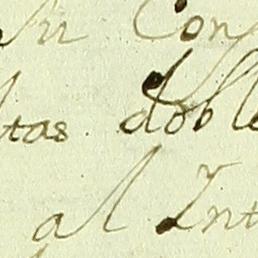 su Con
tas doble
al Int